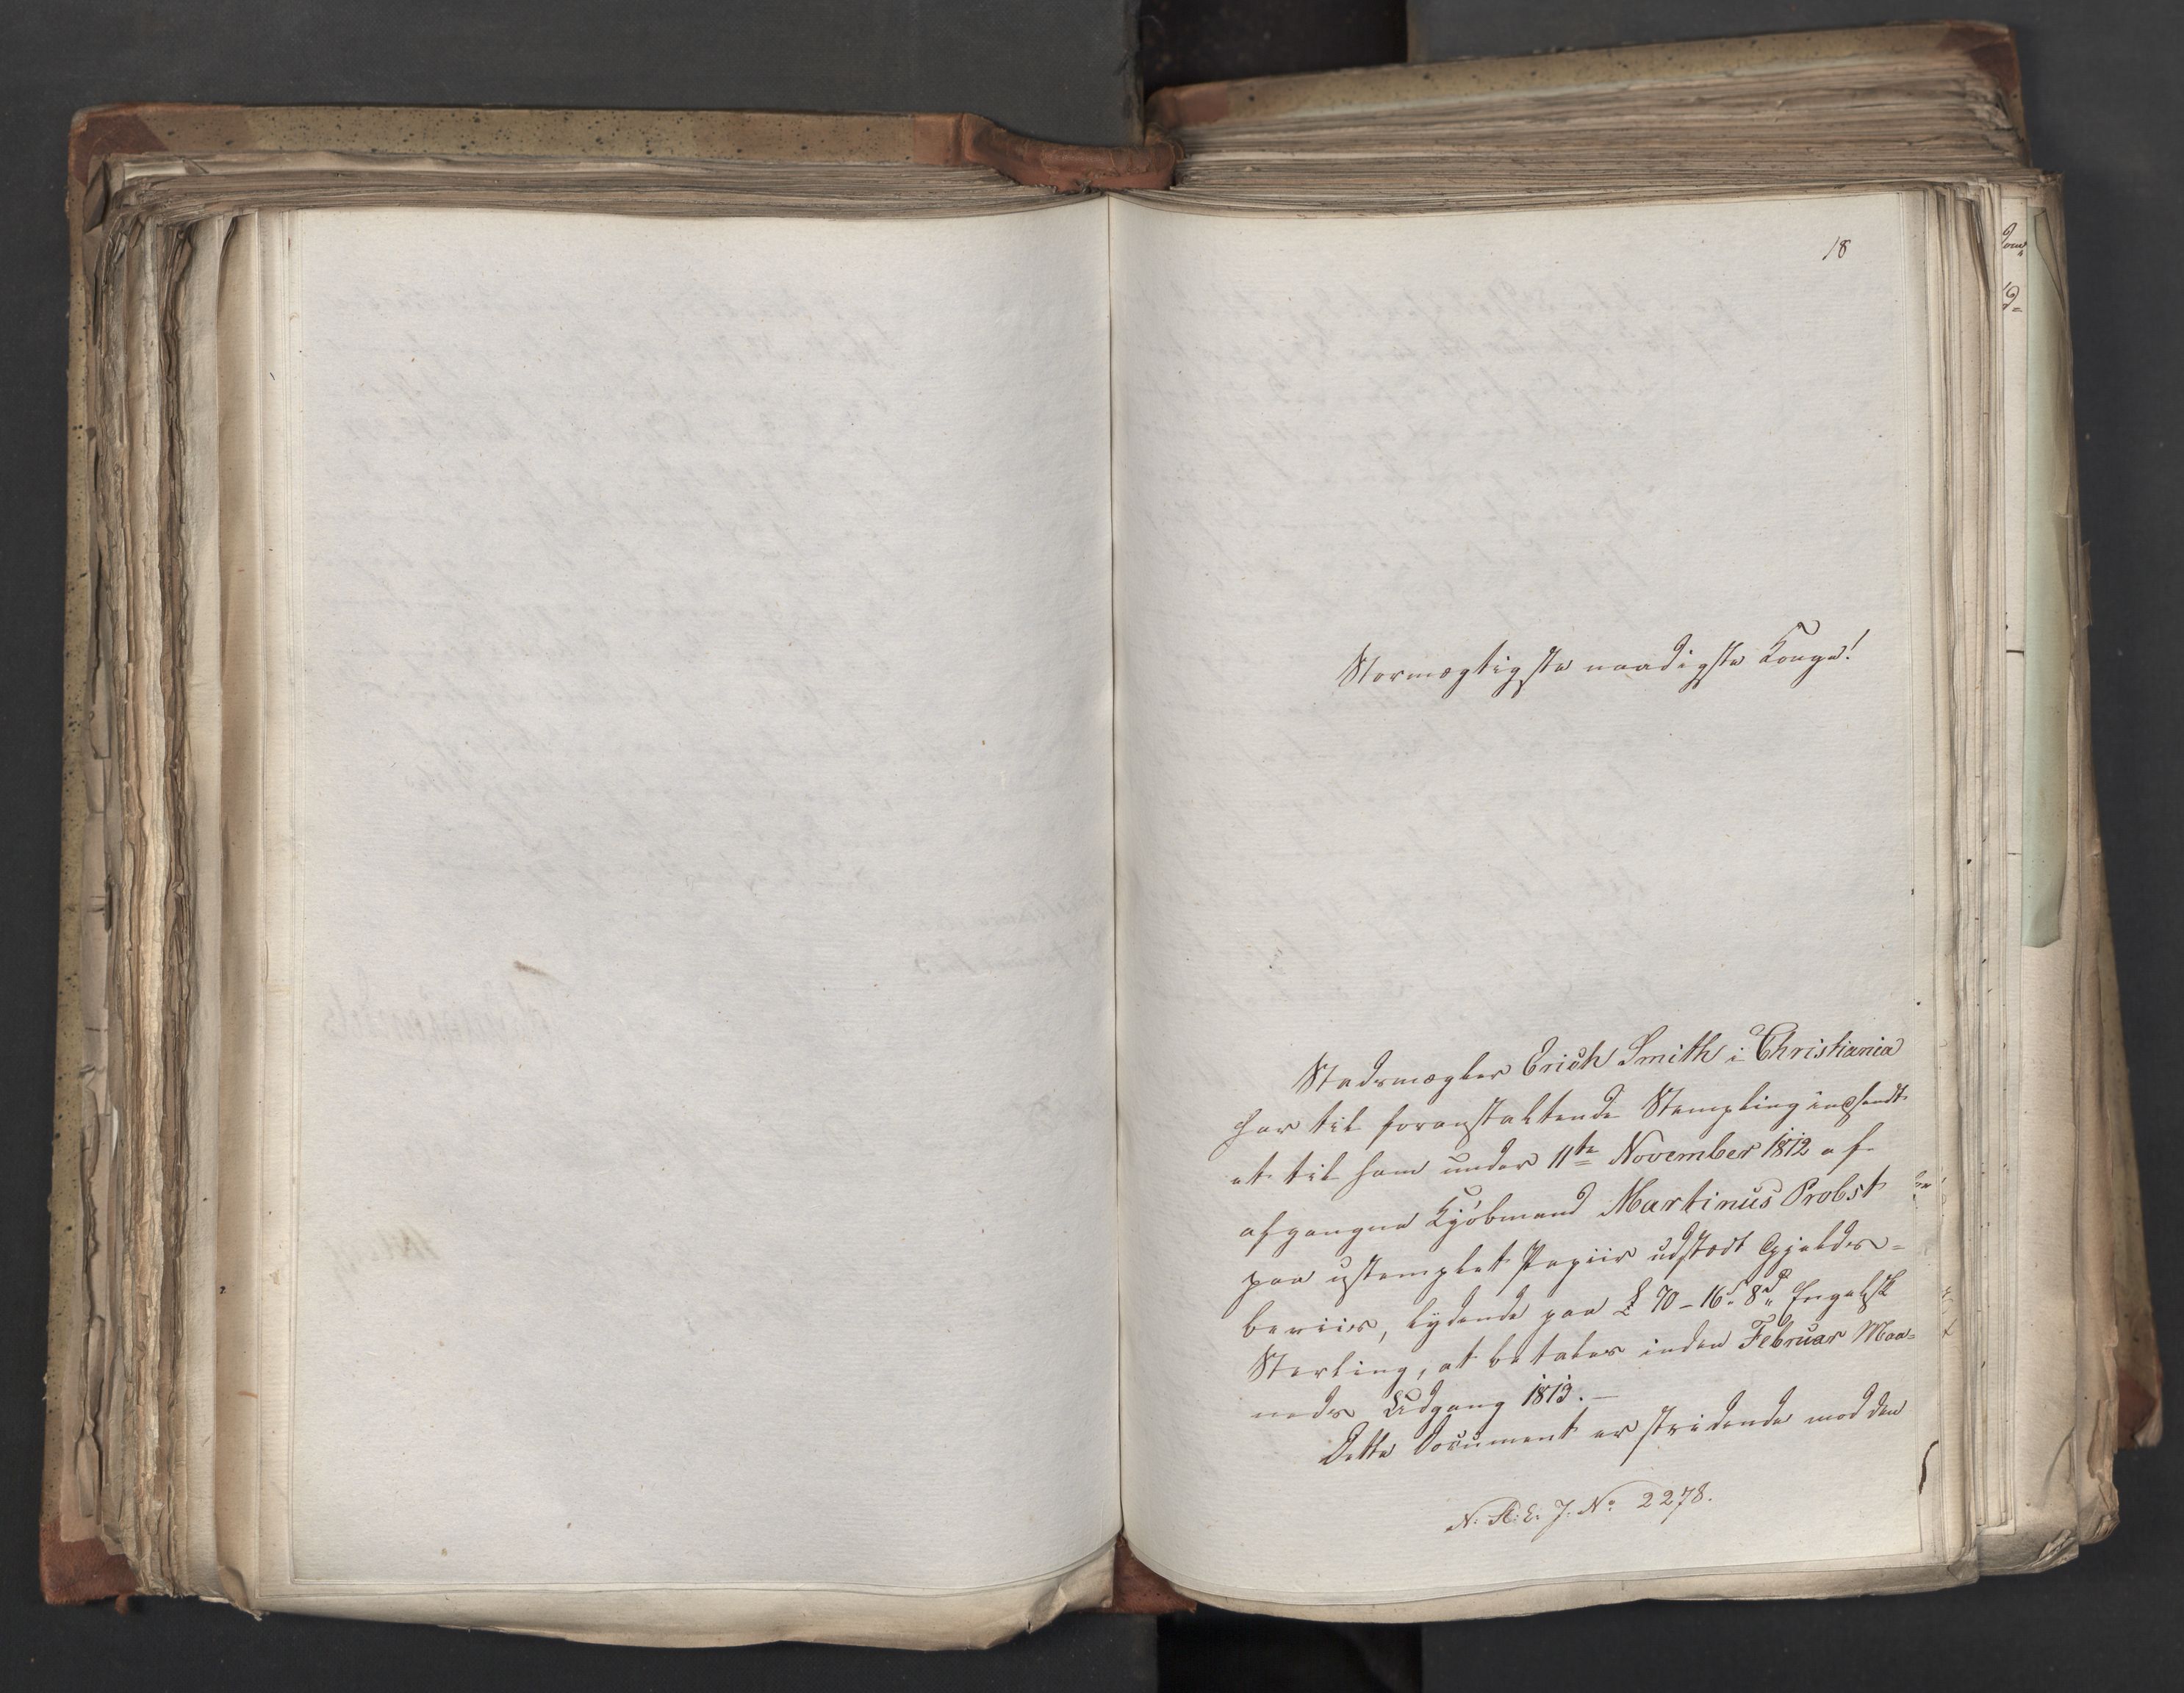 18
Stormægtigste naadigste Konge!
Stadsmægler Erich Smith i Christiania
har til foranstaltende Stempling indsendt
et til ham under 11te November 1812 af
afgangne Kjöbmand Martinus Probst
paa ustemplet Papiir udstædt Gjelds-
beviis, lydende paa £ 70 - 16s 8d Engelsk
Sterling, at betales inden Februar Maa-
neds Udgang 1813. -
Dette Document er stridende mod den
N: R: E. J: No 2278.